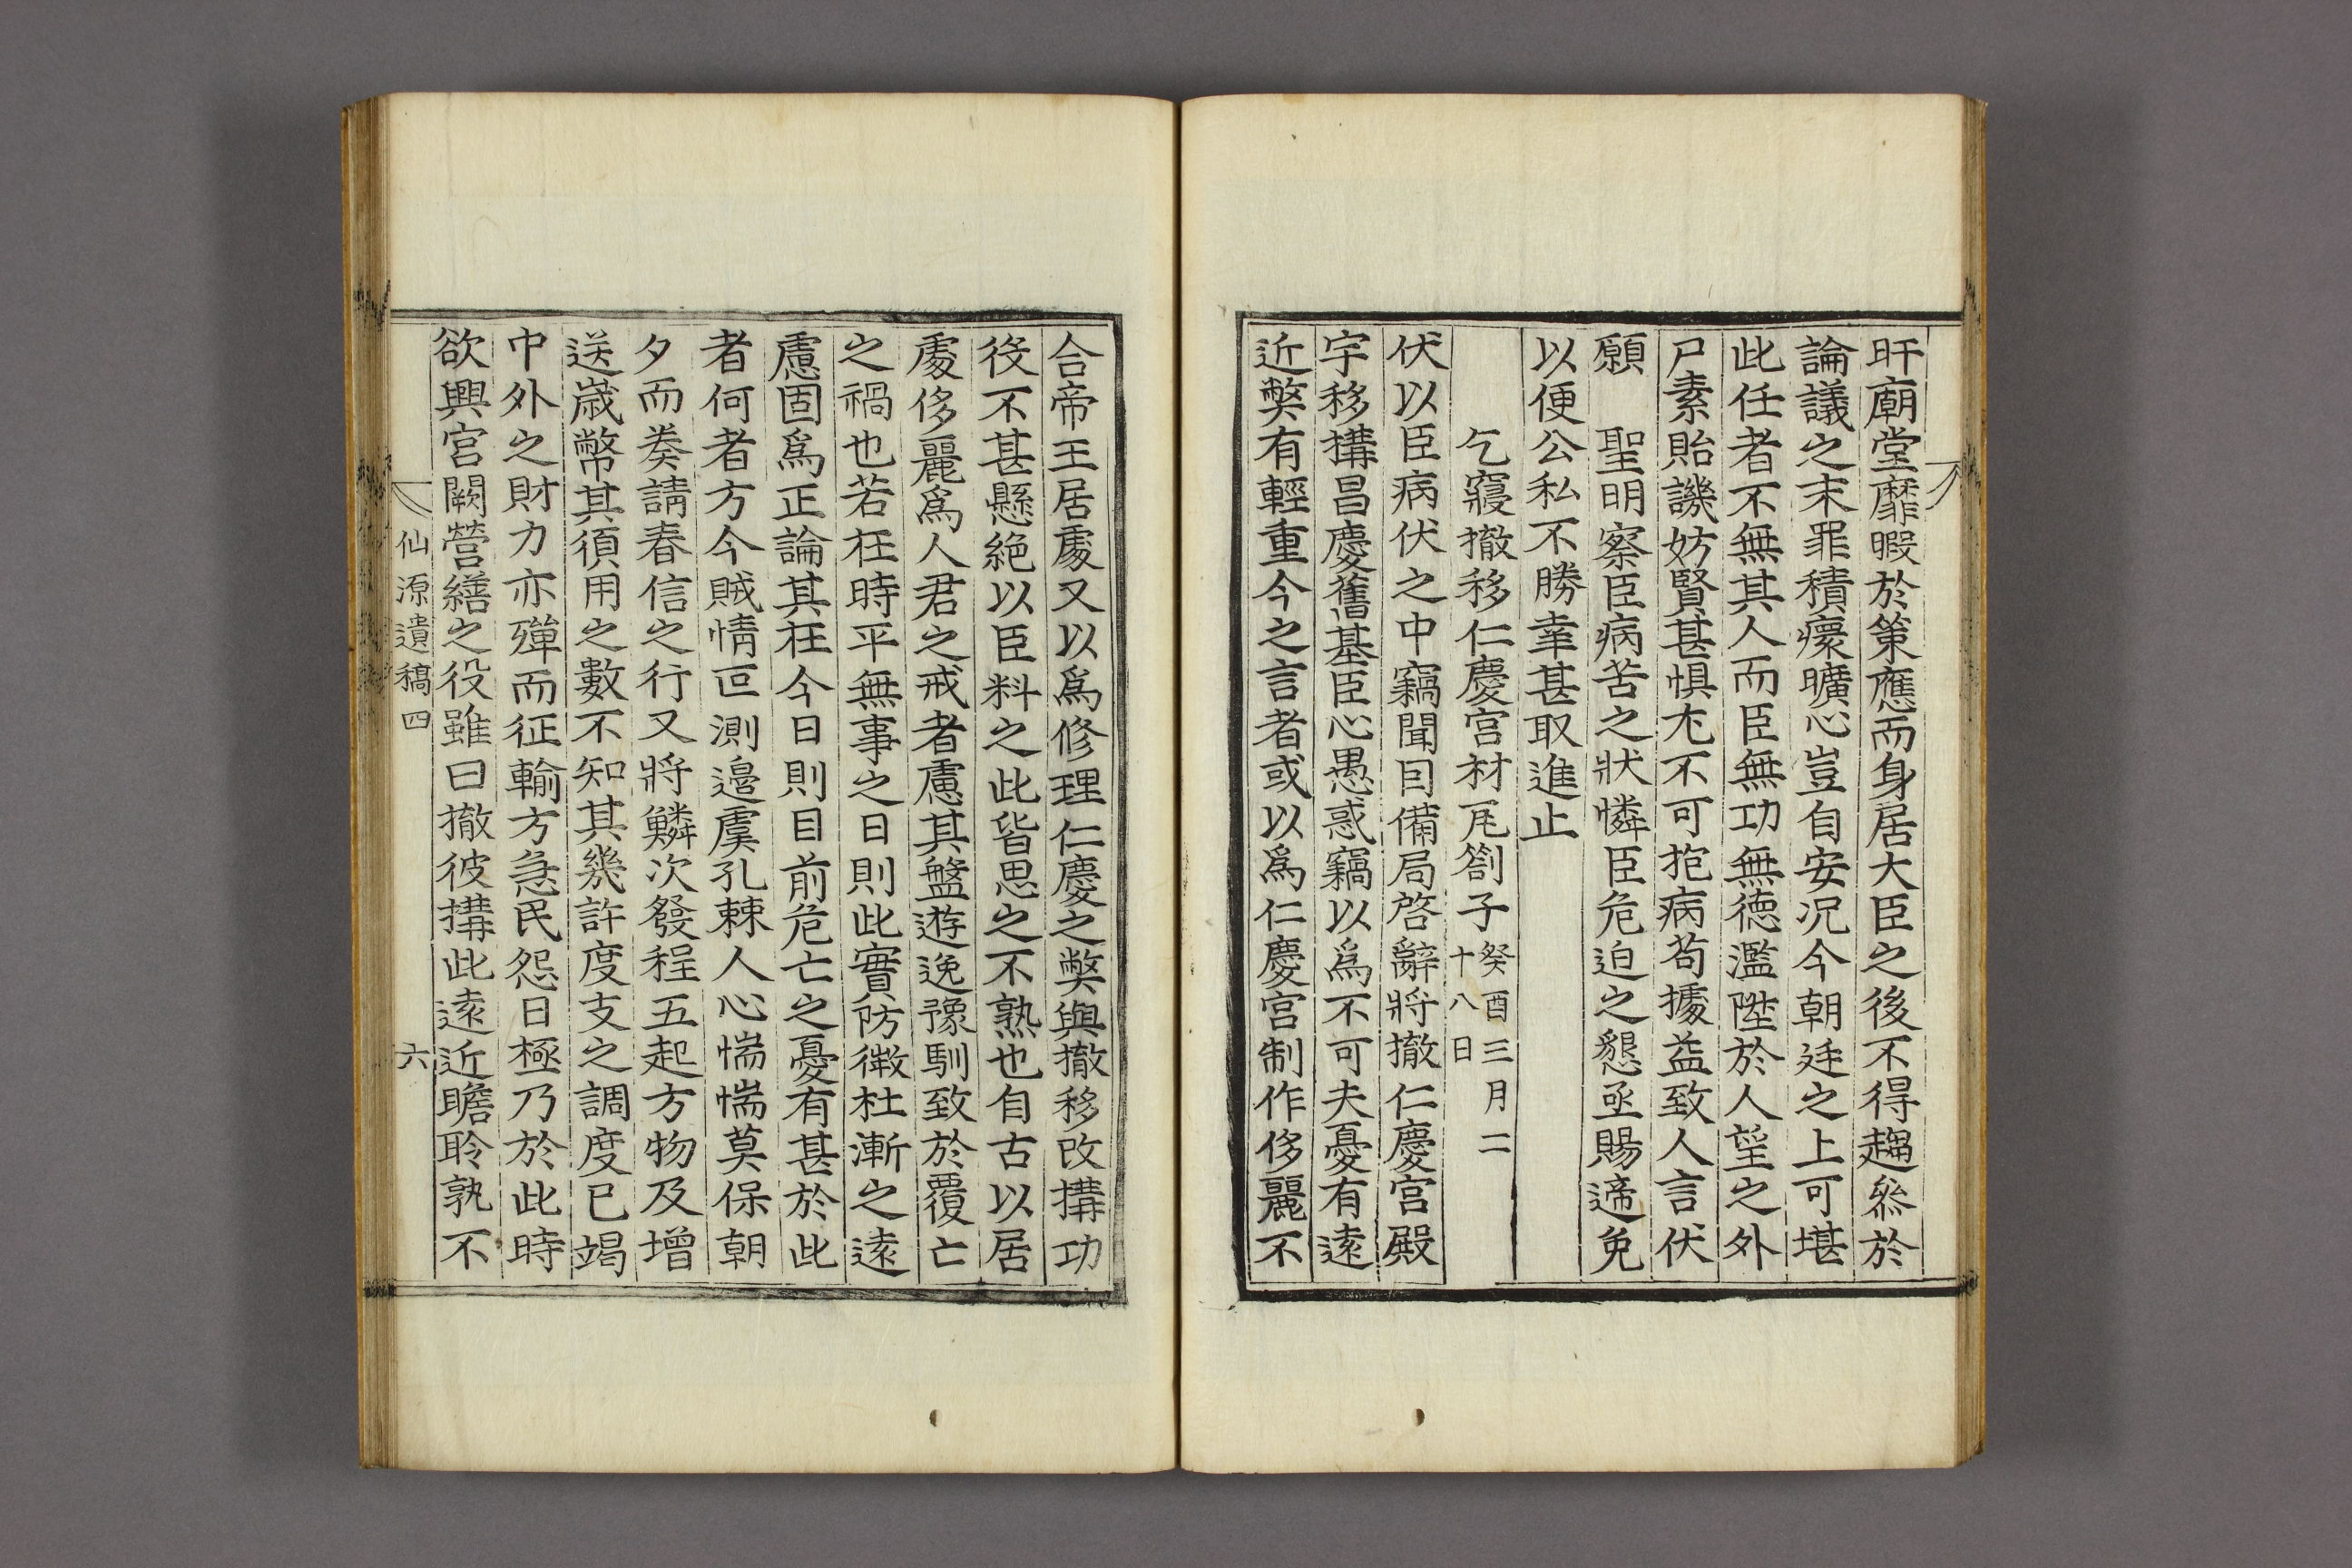 旰廟堂靡暇於策應而身居大臣之後不得趨叅於
論議之末罪積瘝曠心豈自安况今朝廷之上可堪
此任者不無其人而臣無功無德濫陞於人望之外
尸素貽譏妨賢甚惧尤不可抱病苟據益致人言伏
願 聖明察臣病苦之狀憐臣危迫之懇亟賜遆免
以便公私不勝幸甚取進止
乞寢撤移仁慶宮材瓦箚子癸酉三月二十八日
伏以臣病伏之中竊聞因備局啓辭將撤仁慶宮殿
宇移搆昌慶舊基臣心愚惑竊以爲不可夫憂有遠
近弊有輕重今之言者或以爲仁慶宮制作侈麗不
合帝王居處又以爲修理仁慶之弊與撤移改搆功
役不甚懸絶以臣料之此皆思之不熟也自古以居
處侈麗爲人君之戒者慮其盤遊逸豫馴致於覆亡
之禍也若在時平無事之日則此實防微杜漸之遠
慮固爲正論其在今日則目前危亡之憂有甚於此
者何者方今賊情叵測邊虞孔棘人心惴惴莫保朝
夕而奏請春信之行又將鱗次發程五起方物及增
送歲幣其須用之數不知其幾許度支之調度已竭
中外之財力亦殫而征輸方急民怨日極乃於此時
欲興宮闕營繕之役雖曰撤彼搆此遠近瞻聆孰不
仙源遺稿四 六